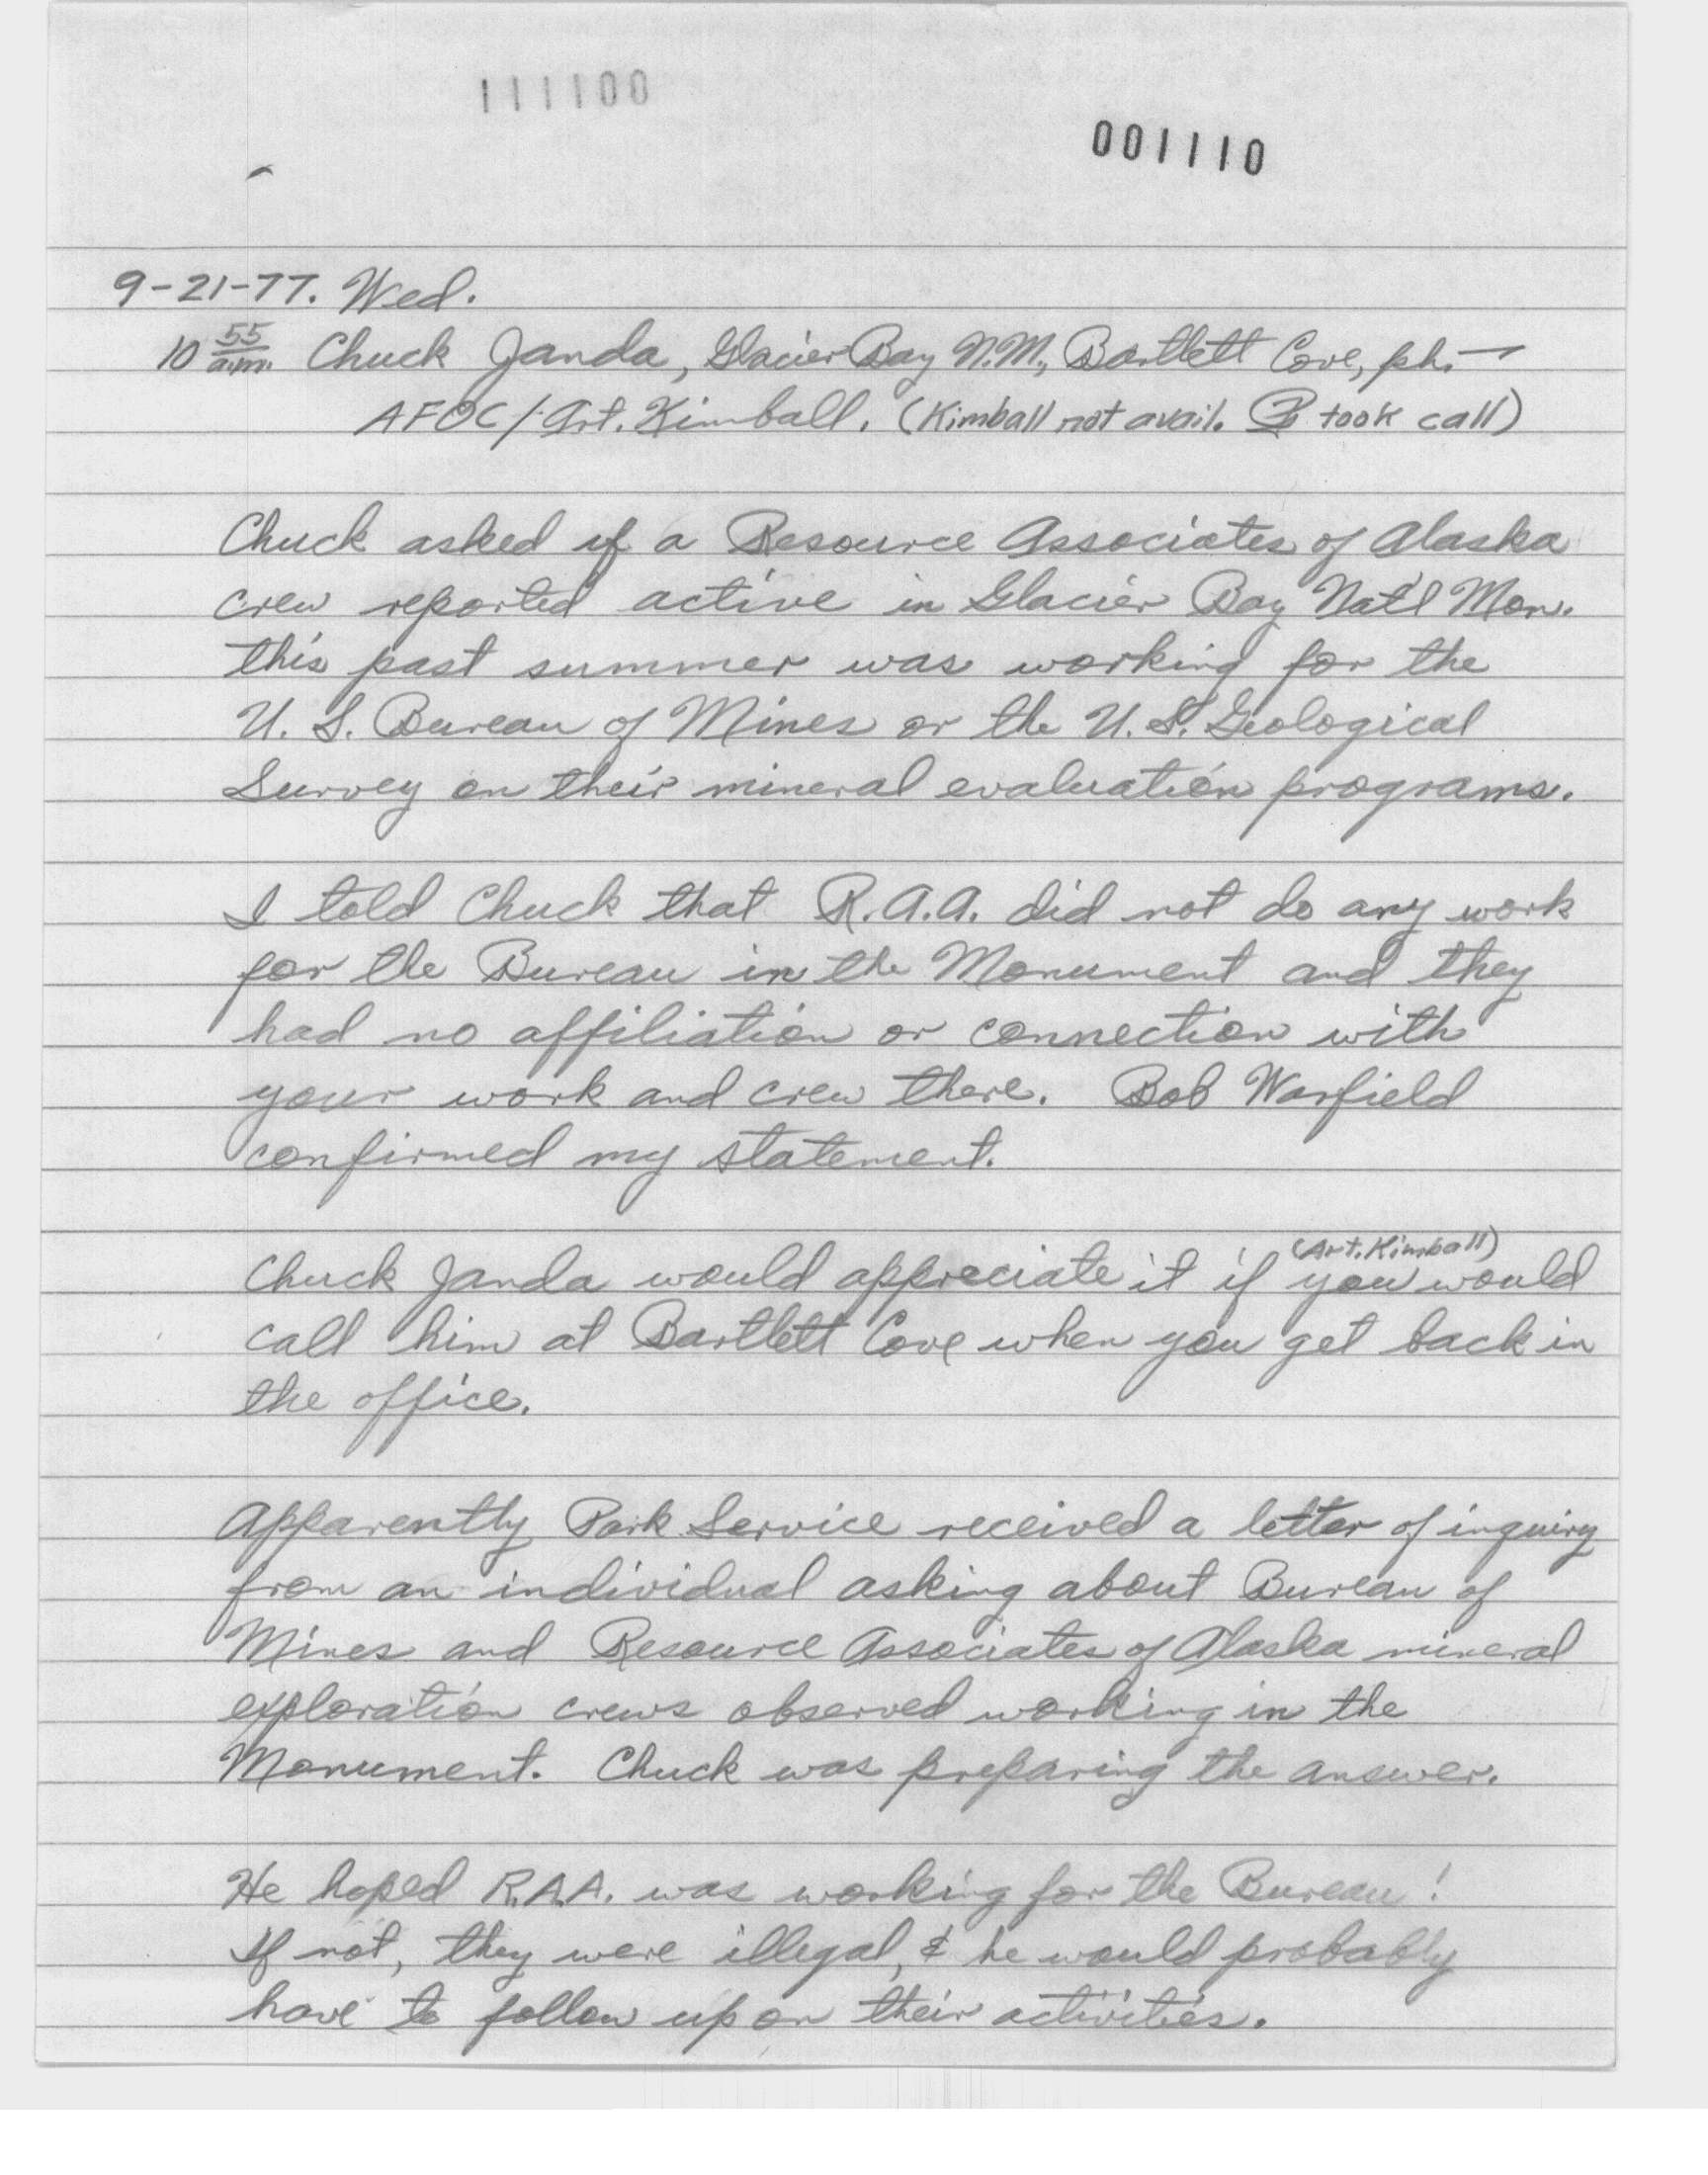 111100
001110
9-21-77. Wed.
10 55 a.m. Chuck Janda, Glacier Bay N.M., Bartlett Cove, ph. →
AFOC / Art. Kimball. (Kimball not avail. took call)
Chuck asked if a Resource Associates of Alaska
crew reported active in Glacier Bay Nat'l Mon.
this past summer was working for the
U. S. Bureau of Mines or the U. S. Geological
Survey on their mineral evaluation programs.
I told Chuck that R.A.A. did not do any work
for the Bureau in the Monument and they
had no affiliation or connection with
your work and crew there. Bob Warfield
confirmed my statement.
(Art. Kimball)
Chuck Janda would appreciate it if you would
call him at Bartlett Cove when you get back in
the office.
Apparently Park Service received a letter of inquiry
from an individual asking about Bureau of
Mines and Resource Associates of Alaska mineral
exploration crews observed working in the
Monument. Chuck was preparing the answer.
He hoped R.A.A. was working for the Bureau!
If not, they were illegal, & he would probably
have to follow up on their activities.